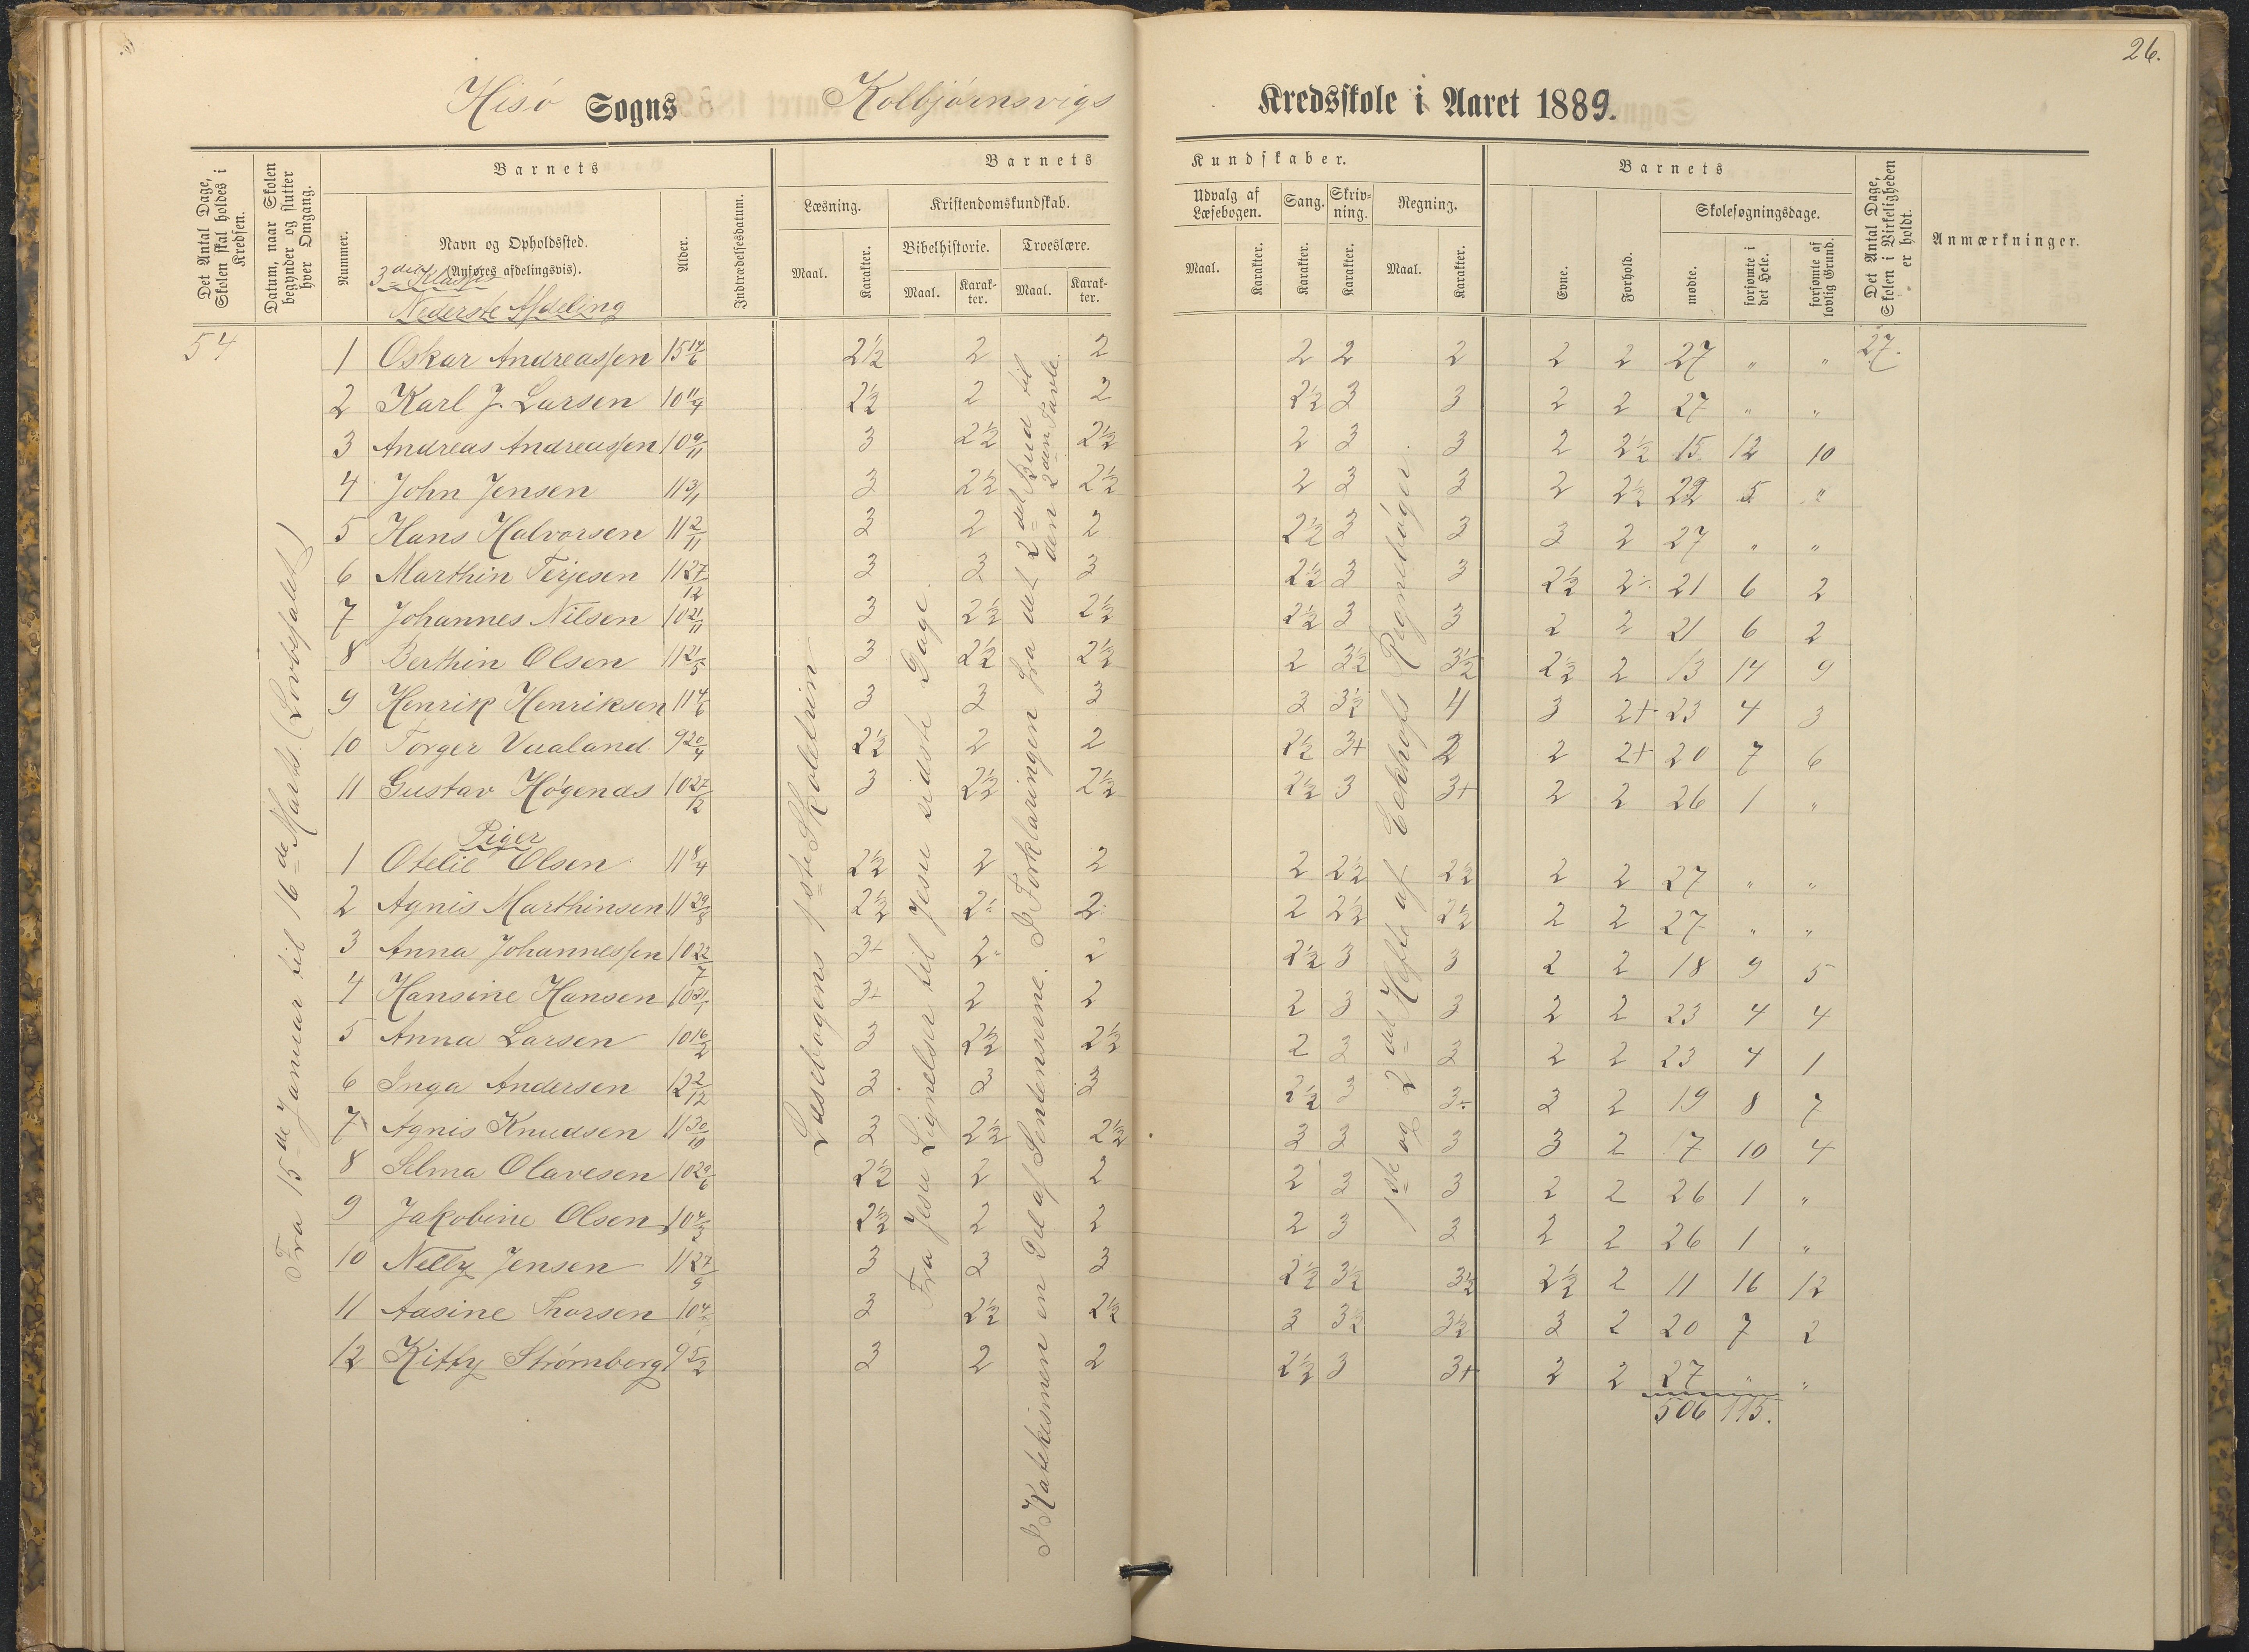 26.
Hisö Sogns Kolbjörnsvigs Kredsskole i Aaret 1889.
Det Antal Dage, Skolen skal holdes i Kredsen.
Datum, naar Skolen begynder og slutter hver Omgang.
Barnets
Nummer.
Navn og Opholdssted.
(Anføres afdelingsvis).
3die Klasse
Nederste Afdeling
Alder.
Indtrædelsesdatum.
Barnets Kundskaber.
Læsning. Kristendomskundskab. Udvalg af Læsebogen. Sang. Skrivning. Regning.
Maal. Karakter. Bibelhistorie. Troeslære. Maal. Karakter. Karakter. Karakter. Maal. Karakter.
Maal. Karakter. Maal. Karakter.
Barnets
Evne. Forhold. Skolesøgningsdage.
mødte. forsømte i det Hele. forsømte af lovlig Grund.
Det Antal Dage, Skolen i Virkeligheden er holdt.
Anmærkninger.
54 1 Oskar Andreassen 15 14/6 2½ 2 2 2 2 2 2 2 27 " " 27.
2 Karl J. Larsen 10 11/4 2½ 2 2 2½ 3 3 2 2 27 " "
3 Andreas Andreassen 10 9/11 3 2½ 2½ 2 3 3 2 2½ 15 12 10
4 John Jensen 11 3/1 3 2½ 2½ 2 3 3 2 2½ 22 5 "
5 Hans Halvorsen 11 2/11 3 2 2 2½ 3 3 3 2 27 " "
6 Marthin Terjesen 11 27/12 3 3 3 2½ 3 3 2½ 2÷ 21 6 2
7 Johannes Nilsen 10 21/11 3 2½ 2½ 2½ 3 3 2 2 21 6 2
8 Berthin Olsen 11 21/5 3 2½ 2½ 2 3½ 3½ 2½ 2 13 14 9
9 Henrik Henriksen 11 4/6 3 3 3 3 3½ 4 3 2+ 23 4 3
10 Torger Vualand 9 20/4 2½ 2 2 2½ 3+ 2 2 2+ 20 7 6
11 Gustav Högenæs 10 27/12 3 2½ 2½ 2½ 3 3+ 2 2 26 1 "
Piger
1 Otelie Olsen 11 8/4 2½ 2 2 2 2½ 2½ 2 2 27 " "
2 Agnis Marthinsen 11 29/8 2½ 2÷ 2÷ 2 2½ 2½ 2 2 27 " "
3 Anna Johannessen 10 22/7 3+ 2÷ 2 2½ 3 3 2 2 18 9 5
4 Hansine Hansen 10 31/1 3+ 2 2 2 3 3 2 2 23 4 4
5 Anna Larsen 10 16/2 3 2½ 2½ 2 3 3 2 2 23 4 1
6 Inga Andersen 12 2/12 3 3 3 2½ 3 3÷ 3 2 19 8 7
7 Agnis Knudsen 11 30/10 3 2½ 2½ 3 3 3 3 2 17 10 4
8 Selma Olavesen 10 29/6 2½ 2 2 2 3 3 2 2 26 1 "
9 Jakobine Olsen 10 4/3 2½ 2 2 2 3 3 2 2 26 1 "
10 Nelly Jensen 11 27/9 3 3 3 2½ 3½ 3½ 2½ 2 11 16 12
11 Aasine Thorsen 10 4/ 3 2½ 2½ 3 3½ 3½ 3 2 20 7 2
12 Kitty Strømberg 9 5/2 3 2 2 2½ 3 3+ 2 2 27 " "
506 115.
Fra 15de Januar til 16de Marts. (Lovbefalet)
Læsebogens 1ste Skoletrin
Fra Jesu Lignelser til Jesu sidste Dage.
I Katekismen en Del af Sentenserne. I Forklaringen fra det 2det Bud til den 2den Tavle.
1ste og 2det Hefte af Eckhofs Regnebøger.